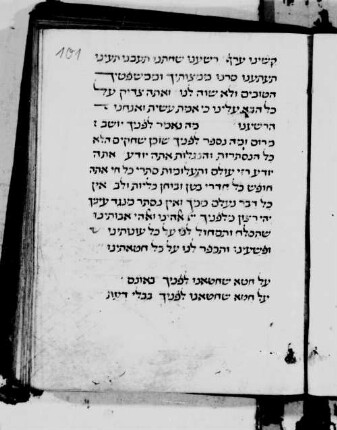 101
קשינו ערף רשענו שחתנו תעבנו תעינו
תעתענו סרנו ממצותיך וממשפטיך
הטובים ולא שוה לנו ואתה צדיק על
כל הבא עלינו כי אמת עשית ואנחנו
הרשענו מה נאמר לפניך יושב
מרום ומה נספר לפניך שוכן שחקים הלא
כל הנסתרות והנגלות אתה יודע אתה
יודע רזי עולם ותעלומות סתרי כל חי אתה
חופש כל חדרי בטן ובוחן כליות ולב אין
כל דבר נעלם ממך ואין נסתר מנגד עיניך
יהי רצון מלפניך אלהינו ואלהי אבותינו
שתסלח ותמחול לנו על כל עונותינו
ופשעינו ותכפר לנו על כל חטאתינו
על חטא שחטאנו לפניך באונס
על חטא שחטאנו לפניך בבלי דעת